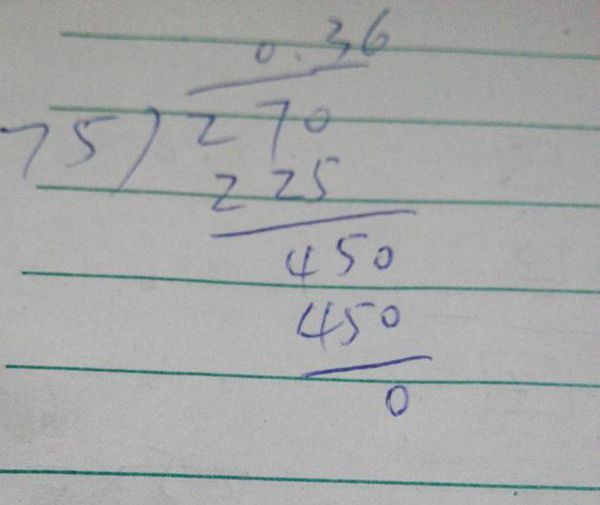 0.36
75)270
225
450
450
0